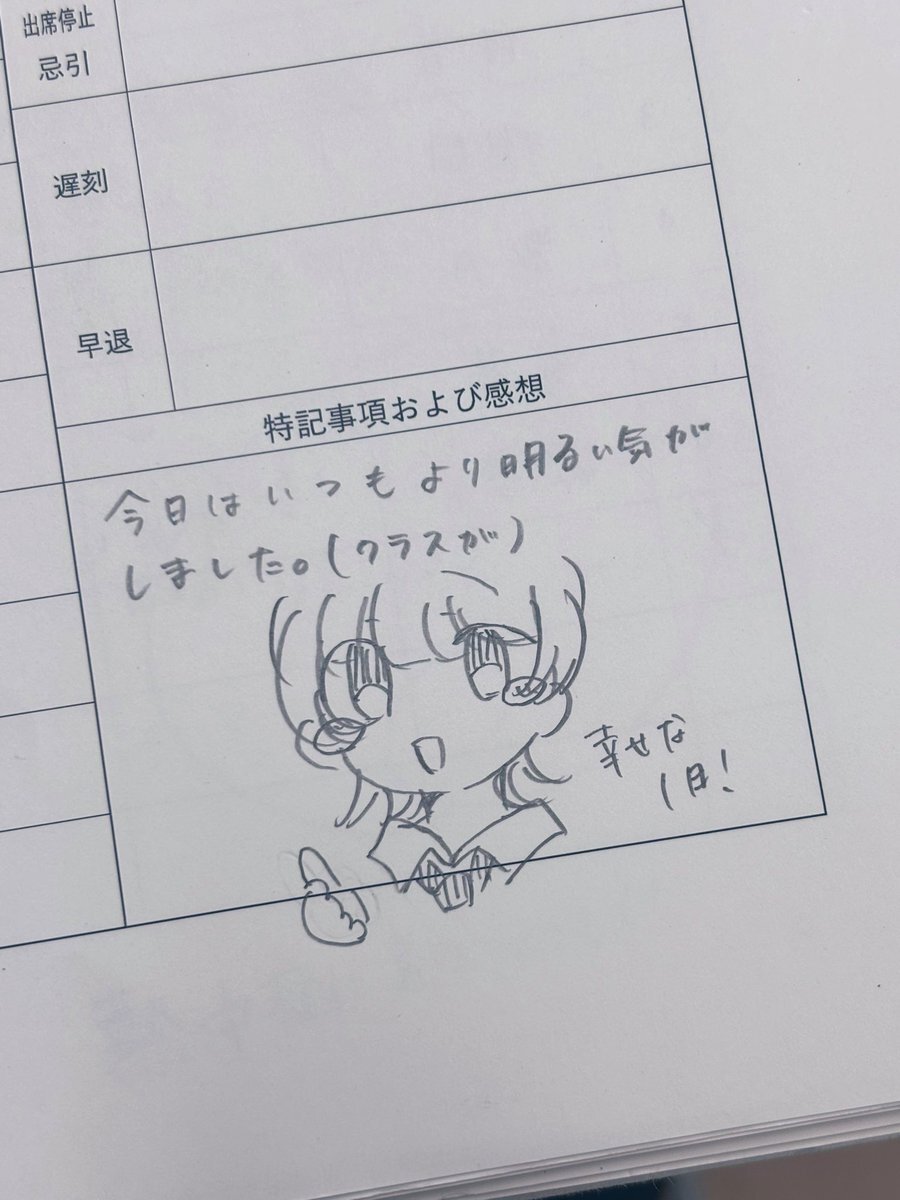 出席停止
忌引
遅刻
早退
特記事項および感想
今日はいつもより明るい気が
しました。(クラスが)
幸せな
1日!